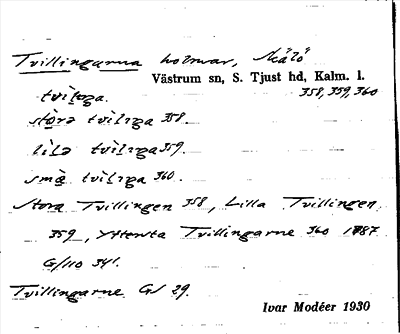 Tvillingarna holmar, Skälö
Västrum sn, S. Tjust hd, Kalm. l.
358, 359, 360
tvìlıŋa.
stòrə tvìlıŋa 358.
lìlə tvìlıŋa 359.
smȧ̀ tvìlıŋa 360.
Stora Tvillingen 358, Lilla Tvillingen
359, Yttersta Tvillingarne 360 1887
G/110 341.
Tvillingarne G/ 29.
Ivar Modéer 1930